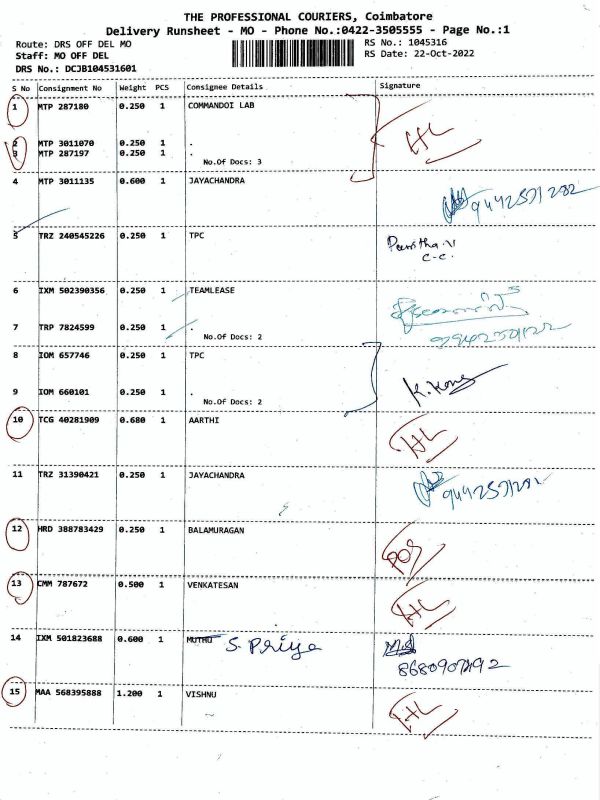 THE PROFESSIONAL COURIERS, Coimbatore
Delivery Runsheet - MO - Phone No.:0422-3505555 - Page No.:1
Route: DRS OFF DEL MO RS No.: 1045316
Staff: MO OFF DEL RS Date: 22-Oct-2022
DRS No.: DCJB104531601
S No Consignment No Weight PCS Consignee Details Signature
1 MTP 287180 0.250 1 COMMANDOI LAB
HL
2 MTP 3011070 0.250 1 .
3 MTP 287197 0.250 1 .
No.Of Docs: 3
4 MTP 3011135 0.600 1 JAYACHANDRA
5 TRZ 240545226 0.250 1 TPC
C-C.
6 IXM 502390356 0.250 1 TEAMLEASE
7 TRP 7824599 0.250 1 .
No.Of Docs: 2
8 IOM 657746 0.250 1 TPC
9 IOM 660101 0.250 1 .
No.Of Docs: 2
10 TCG 40281909 0.680 1 AARTHI HL
11 TRZ 31390421 0.250 1 JAYACHANDRA
12 HRD 388783429 0.250 1 BALAMURAGAN
13 CMM 787672 0.500 1 VENKATESAN HL
14 IXM 501823688 0.600 1 MUTHU S. Priya
15 MAA 568395888 1.200 1 VISHNU HL